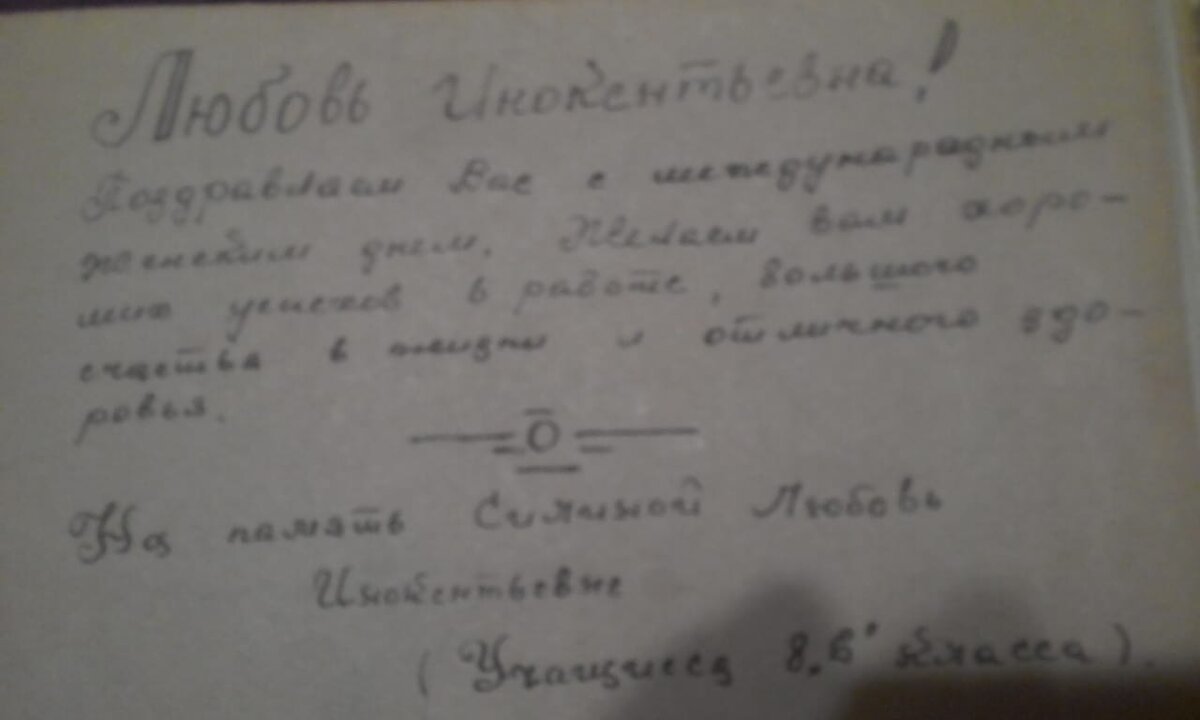 Любовь Инокентьевна!
Поздравлаам Вас с междунарадным
женским днем. Желаем вам хоро-
ших успехов в работе, большого
счастья в жизни и отличного здо-
ровья.
На память Силиной Любовь
Инокентьевне
(Учащиеся 8 "б" класса).